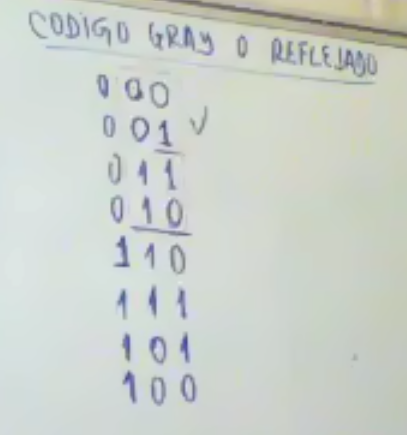 CODIGO GRAY O REFLEJADO
0 0 0
0 0 1 ✓
0 1 1
0 1 0
1 1 0
1 1 1
1 0 1
1 0 0